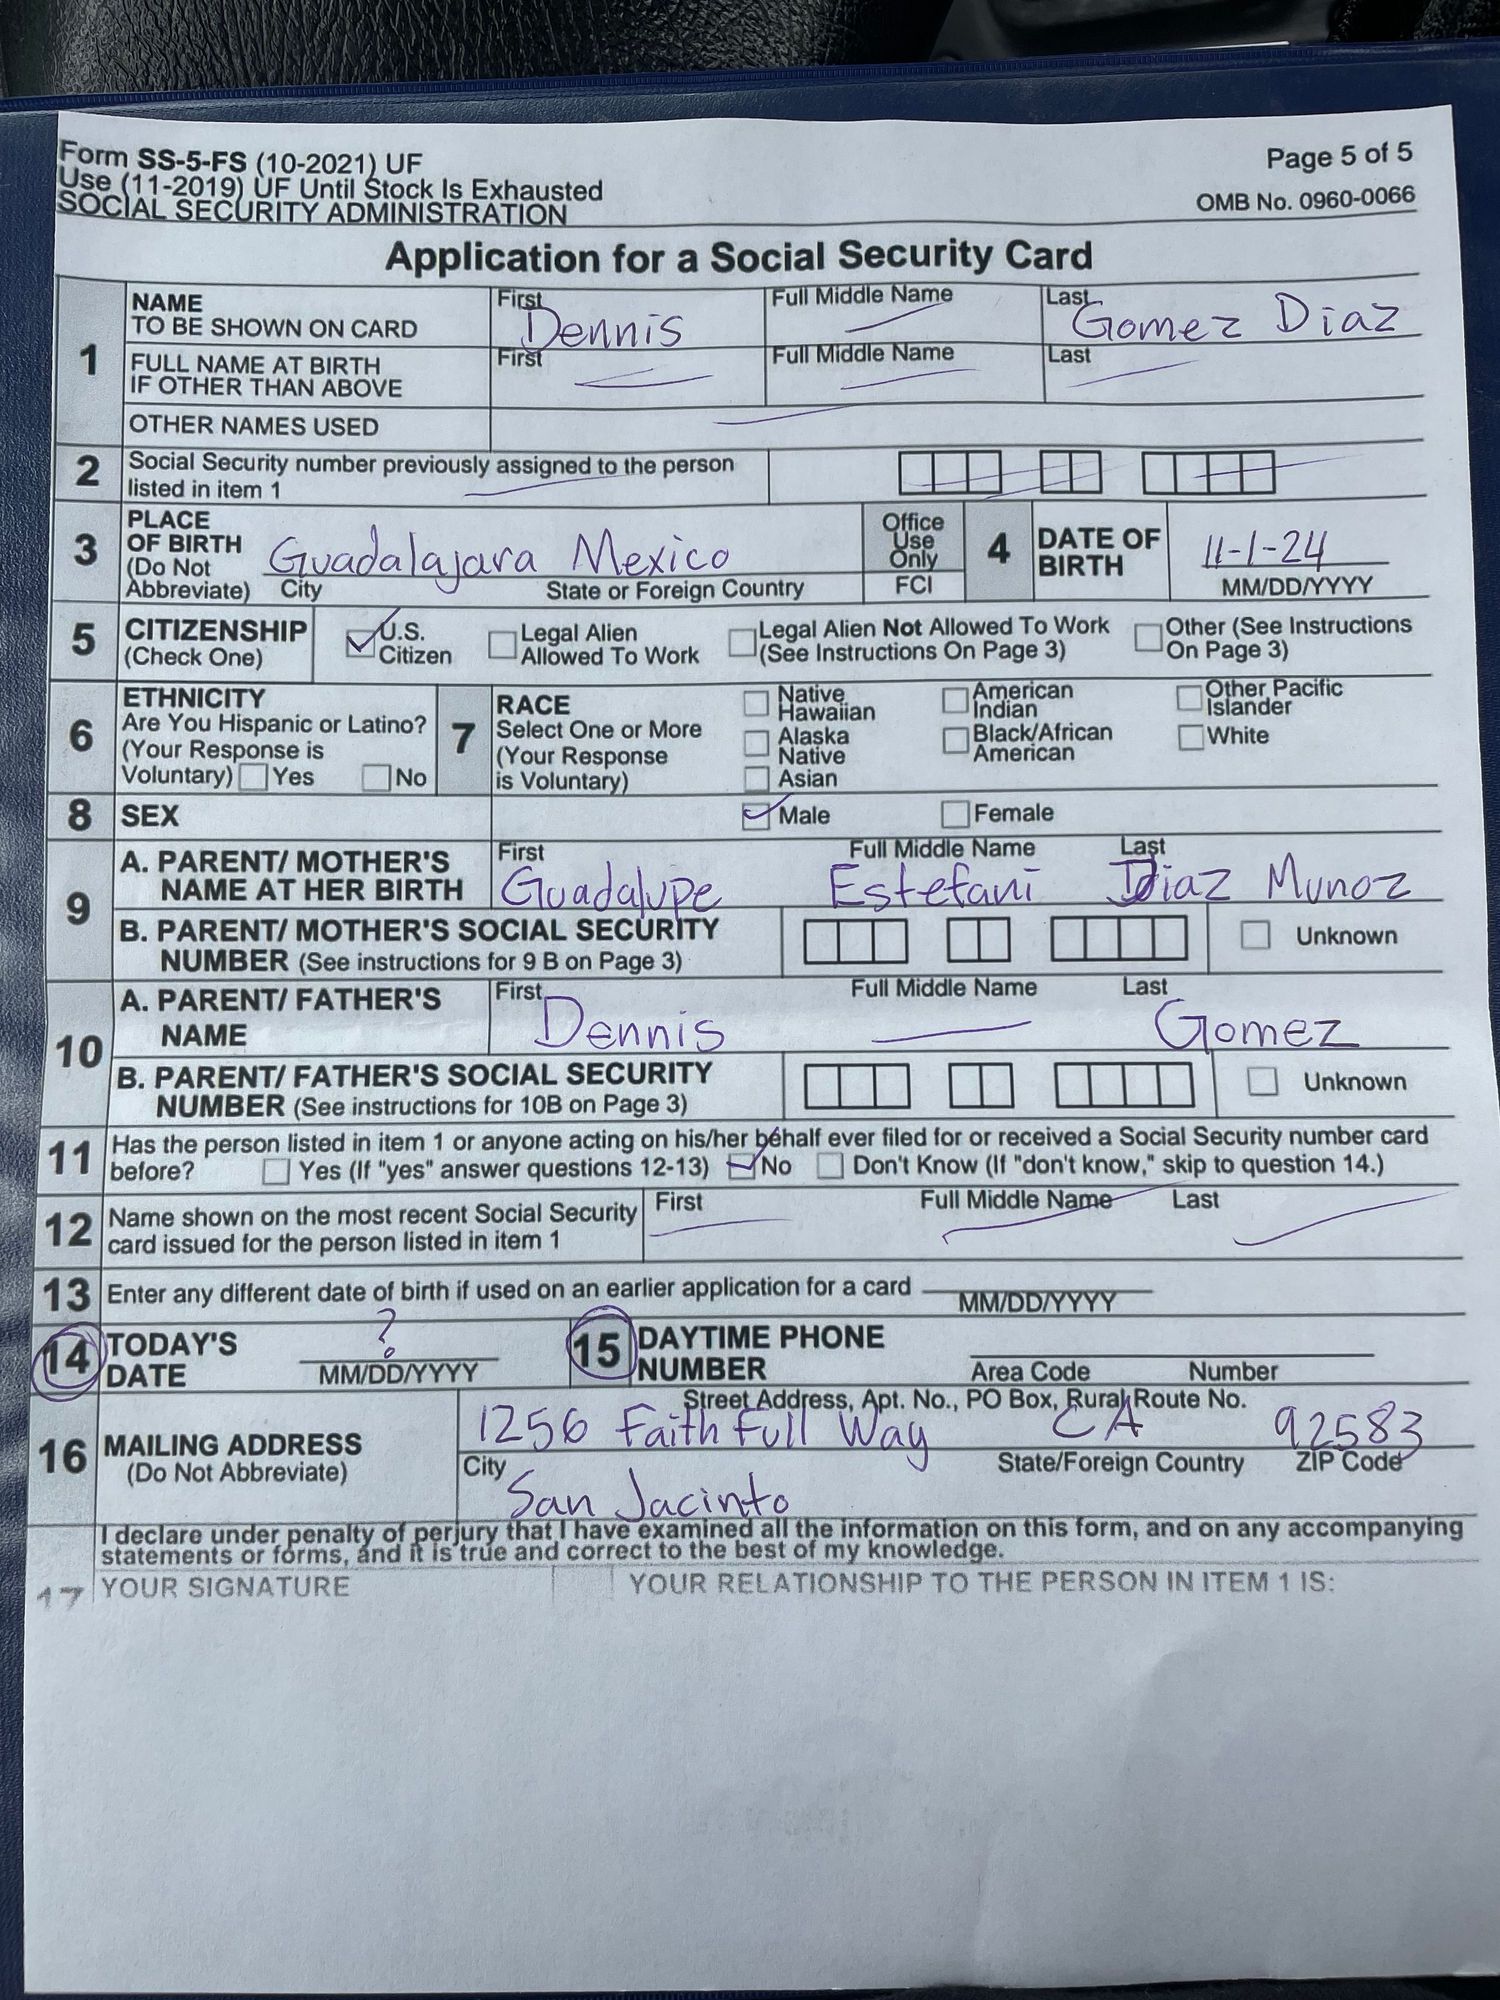 Form SS-5-FS (10-2021) UF
Page 5 of 5
Use (11-2019) UF Until Stock Is Exhausted
SOCIAL SECURITY ADMINISTRATION
OMB No. 0960-0066
Application for a Social Security Card
1
NAME
TO BE SHOWN ON CARD
First
Dennis
Full Middle Name
Last
Gomez Diaz
FULL NAME AT BIRTH
IF OTHER THAN ABOVE
First
Full Middle Name
Last
OTHER NAMES USED
2
Social Security number previously assigned to the person
listed in item 1
3
PLACE
OF BIRTH
(Do Not
Abbreviate)
Guadalajara Mexico
City
State or Foreign Country
Office
Use
Only
FCI
4
DATE OF
BIRTH
11-1-24
MM/DD/YYYY
5
CITIZENSHIP
(Check One)
U.S.
Citizen
Legal Alien
Allowed To Work
Legal Alien Not Allowed To Work
(See Instructions On Page 3)
Other (See Instructions
On Page 3)
6
ETHNICITY
Are You Hispanic or Latino?
(Your Response is
Voluntary)
Yes
No
7
RACE
Select One or More
(Your Response
is Voluntary)
Native
Hawaiian
Alaska
Native
Asian
American
Indian
Black/African
American
Other Pacific
Islander
White
8
SEX
Male
Female
9
A. PARENT/ MOTHER'S
NAME AT HER BIRTH
First
Guadalupe
Full Middle Name
Estefani
Last
Diaz Munoz
B. PARENT/ MOTHER'S SOCIAL SECURITY
NUMBER (See instructions for 9 B on Page 3)
Unknown
10
A. PARENT/ FATHER'S
NAME
First
Dennis
Full Middle Name
Last
Gomez
B. PARENT/ FATHER'S SOCIAL SECURITY
NUMBER (See instructions for 10B on Page 3)
Unknown
11
Has the person listed in item 1 or anyone acting on his/her behalf ever filed for or received a Social Security number card
before?
Yes (If "yes" answer questions 12-13)
No
Don't Know (If "don't know," skip to question 14.)
12
Name shown on the most recent Social Security
card issued for the person listed in item 1
First
Full Middle Name
Last
13
Enter any different date of birth if used on an earlier application for a card
MM/DD/YYYY
14
TODAY'S
DATE
?
MM/DD/YYYY
15
DAYTIME PHONE
NUMBER
Area Code
Number
16
MAILING ADDRESS
(Do Not Abbreviate)
Street Address, Apt. No., PO Box, Rural Route No.
1256 Faith Full Way CA 92583
City
State/Foreign Country
ZIP Code
San Jacinto
I declare under penalty of perjury that I have examined all the information on this form, and on any accompanying
statements or forms, and it is true and correct to the best of my knowledge.
17
YOUR SIGNATURE
YOUR RELATIONSHIP TO THE PERSON IN ITEM 1 IS: